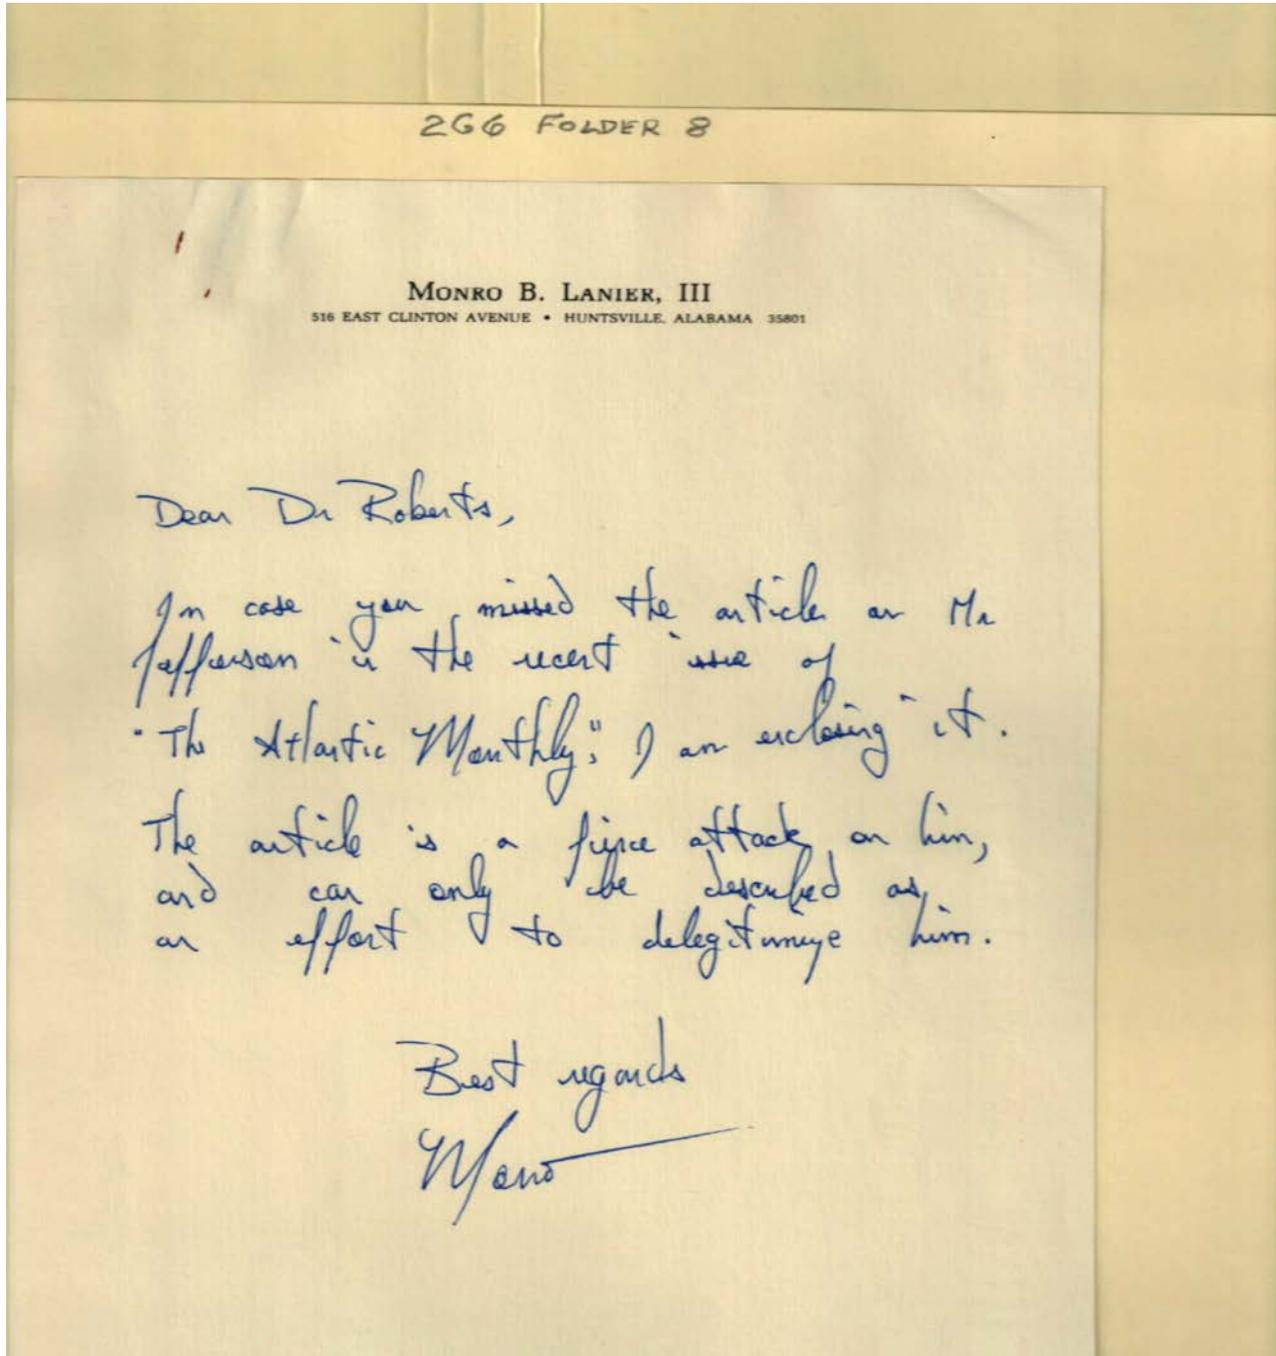 2G6 FOLDER 8
MONRO B. LANIER, III
516 EAST CLINTON AVENUE • HUNTSVILLE, ALABAMA 35801
Dear Dr Roberts,
In case you missed the article on Mr
Jefferson in the recent issue of
"The Atlantic Monthly", I am enclosing it.
The article is a fierce attack on him,
and can only be described as
an effort to delegitimize him.
Best regards
Monro